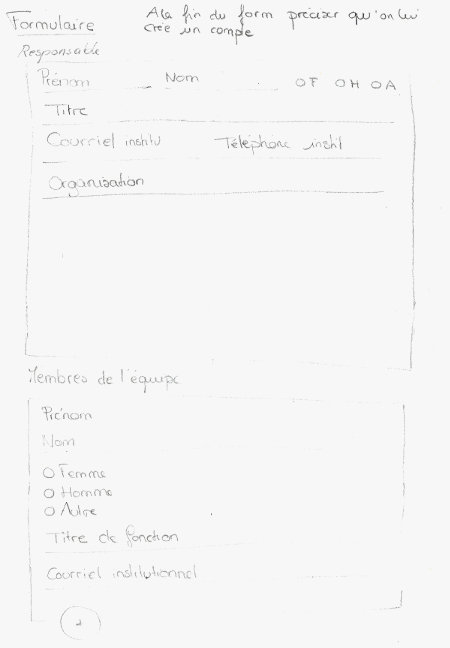 Formulaire
A la fin du form préciser qu'on lui
crée un compte
Responsable
Prénom Nom O F O H O A
Titre
Courriel institu Téléphone instit
Organisation
Membres de l'équipe
Prénom
Nom
O Femme
O Homme
O Autre
Titre de fonction
Courriel institutionnel